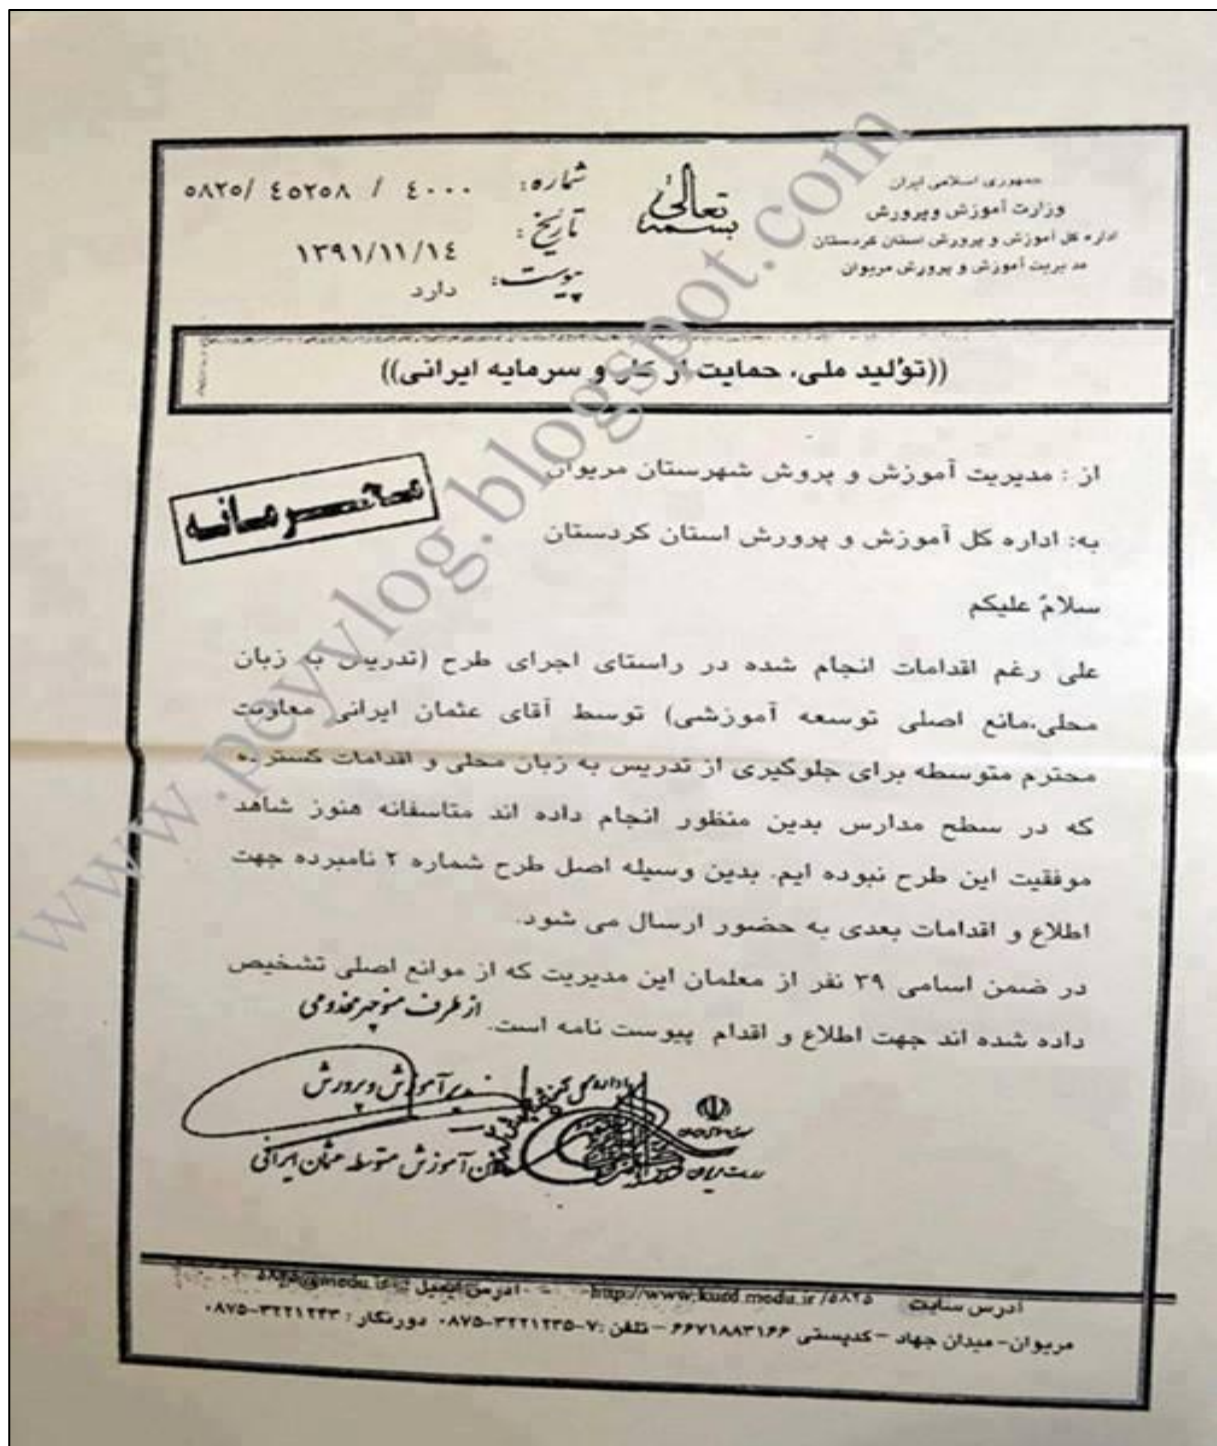 جمهوری اسلامی ایران
وزارت آموزش وپرورش
اداره کل آموزش و پرورش استان کردستان
مدیریت آموزش و پرورش مریوان
بسمه تعالی
شماره: ٤٠٠٠ / ٤٥٢٥٨ /٥٨٢٥
تاریخ: ١٣٩١/١١/١٤
پیوست: دارد
((تؤلید ملی، حمایت از کار و سرمایه ایرانی))
محرمانه
از : مدیریت آموزش و پروش شهرستان مریوان
به: اداره کل آموزش و پرورش استان کردستان
سلامٌ علیکم
علی رغم اقدامات انجام شده در راستای اجرای طرح (تدریس به زبان
محلی،مانع اصلی توسعه آموزشی) توسط آقای عثمان ایرانی معاونت
محترم متوسطه برای جلوگیری از تدریس به زبان محلی و اقدامات گسترده
که در سطح مدارس بدین منظور انجام داده اند متاسفانه هنوز شاهد
موفقیت این طرح نبوده ایم. بدین وسیله اصل طرح شماره ۲ نامبرده جهت
اطلاع و اقدامات بعدی به حضور ارسال می شود.
در ضمن اسامی ۳۹ نفر از معلمان این مدیریت که از موانع اصلی تشخیص
داده شده اند جهت اطلاع و اقدام پیوست نامه است.
از طرف منوچهر مخدومی
مدیر آموزش و پرورش
آموزش متوسطه عثمان ایرانی
آدرس سایت http://www.kurd.medu.ir/٥٨٢٥ - آدرس ایمیل
مریوان- میدان جهاد -کدپستی ۶۶۷۱۸۸۳۱۶۶ -تلفن :۷-۰۸۷۵-۳۲۲۱۲۳۵ دورنگار : ۰۸۷۵-۳۲۲۱۲۳۳
www.peyvlog.blogspot.com